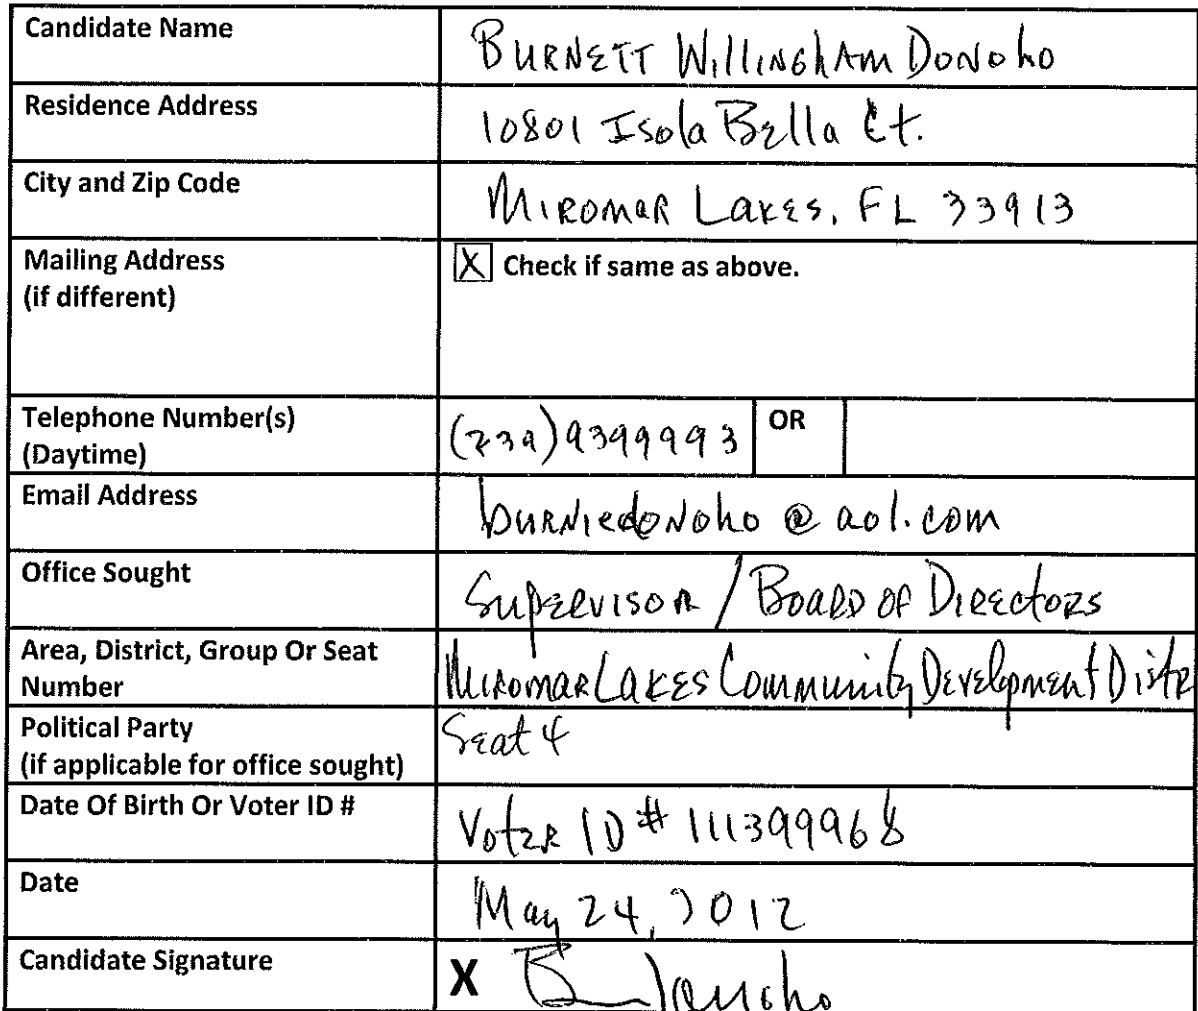 Candidate Name BURNETT WILLINGHAM DONOHO
Residence Address 10801 Isola Bella Ct.
City and Zip Code MIROMAR LAKES, FL 33913
Mailing Address
(if different)
X Check if same as above.
Telephone Number(s)
(Daytime)
(239) 9399993 OR
Email Address burniedonoho @ aol.com
Office Sought Supervisor / Board of Directors
Area, District, Group Or Seat
Number
Miromar Lakes Community Development Distr
Political Party
(if applicable for office sought)
Seat 4
Date Of Birth Or Voter ID # Voter ID # 111399968
Date May 24, 2012
Candidate Signature X B Donoho